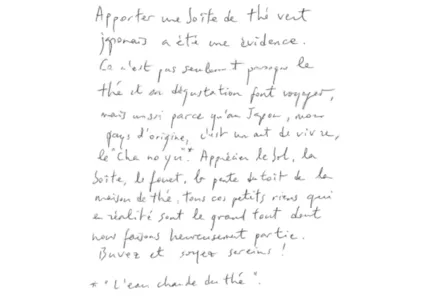 Apporter une boîte de thé vert
japonais a été une évidence.
Ce n'est pas seulement parce que le
thé et sa dégustation font voyager,
mais aussi parce qu'au Japon, mon
pays d'origine, c'est un art de vivre,
le "Cha no yu".* Apprécier le bol, la
boîte, le fouet, la pente du toit de la
maison de thé, tous ces petits riens qui
en réalité sont le grand tout dont
nous faisons heureusement partie.
Buvez et soyez sereins !
* "L'eau chaude du thé".